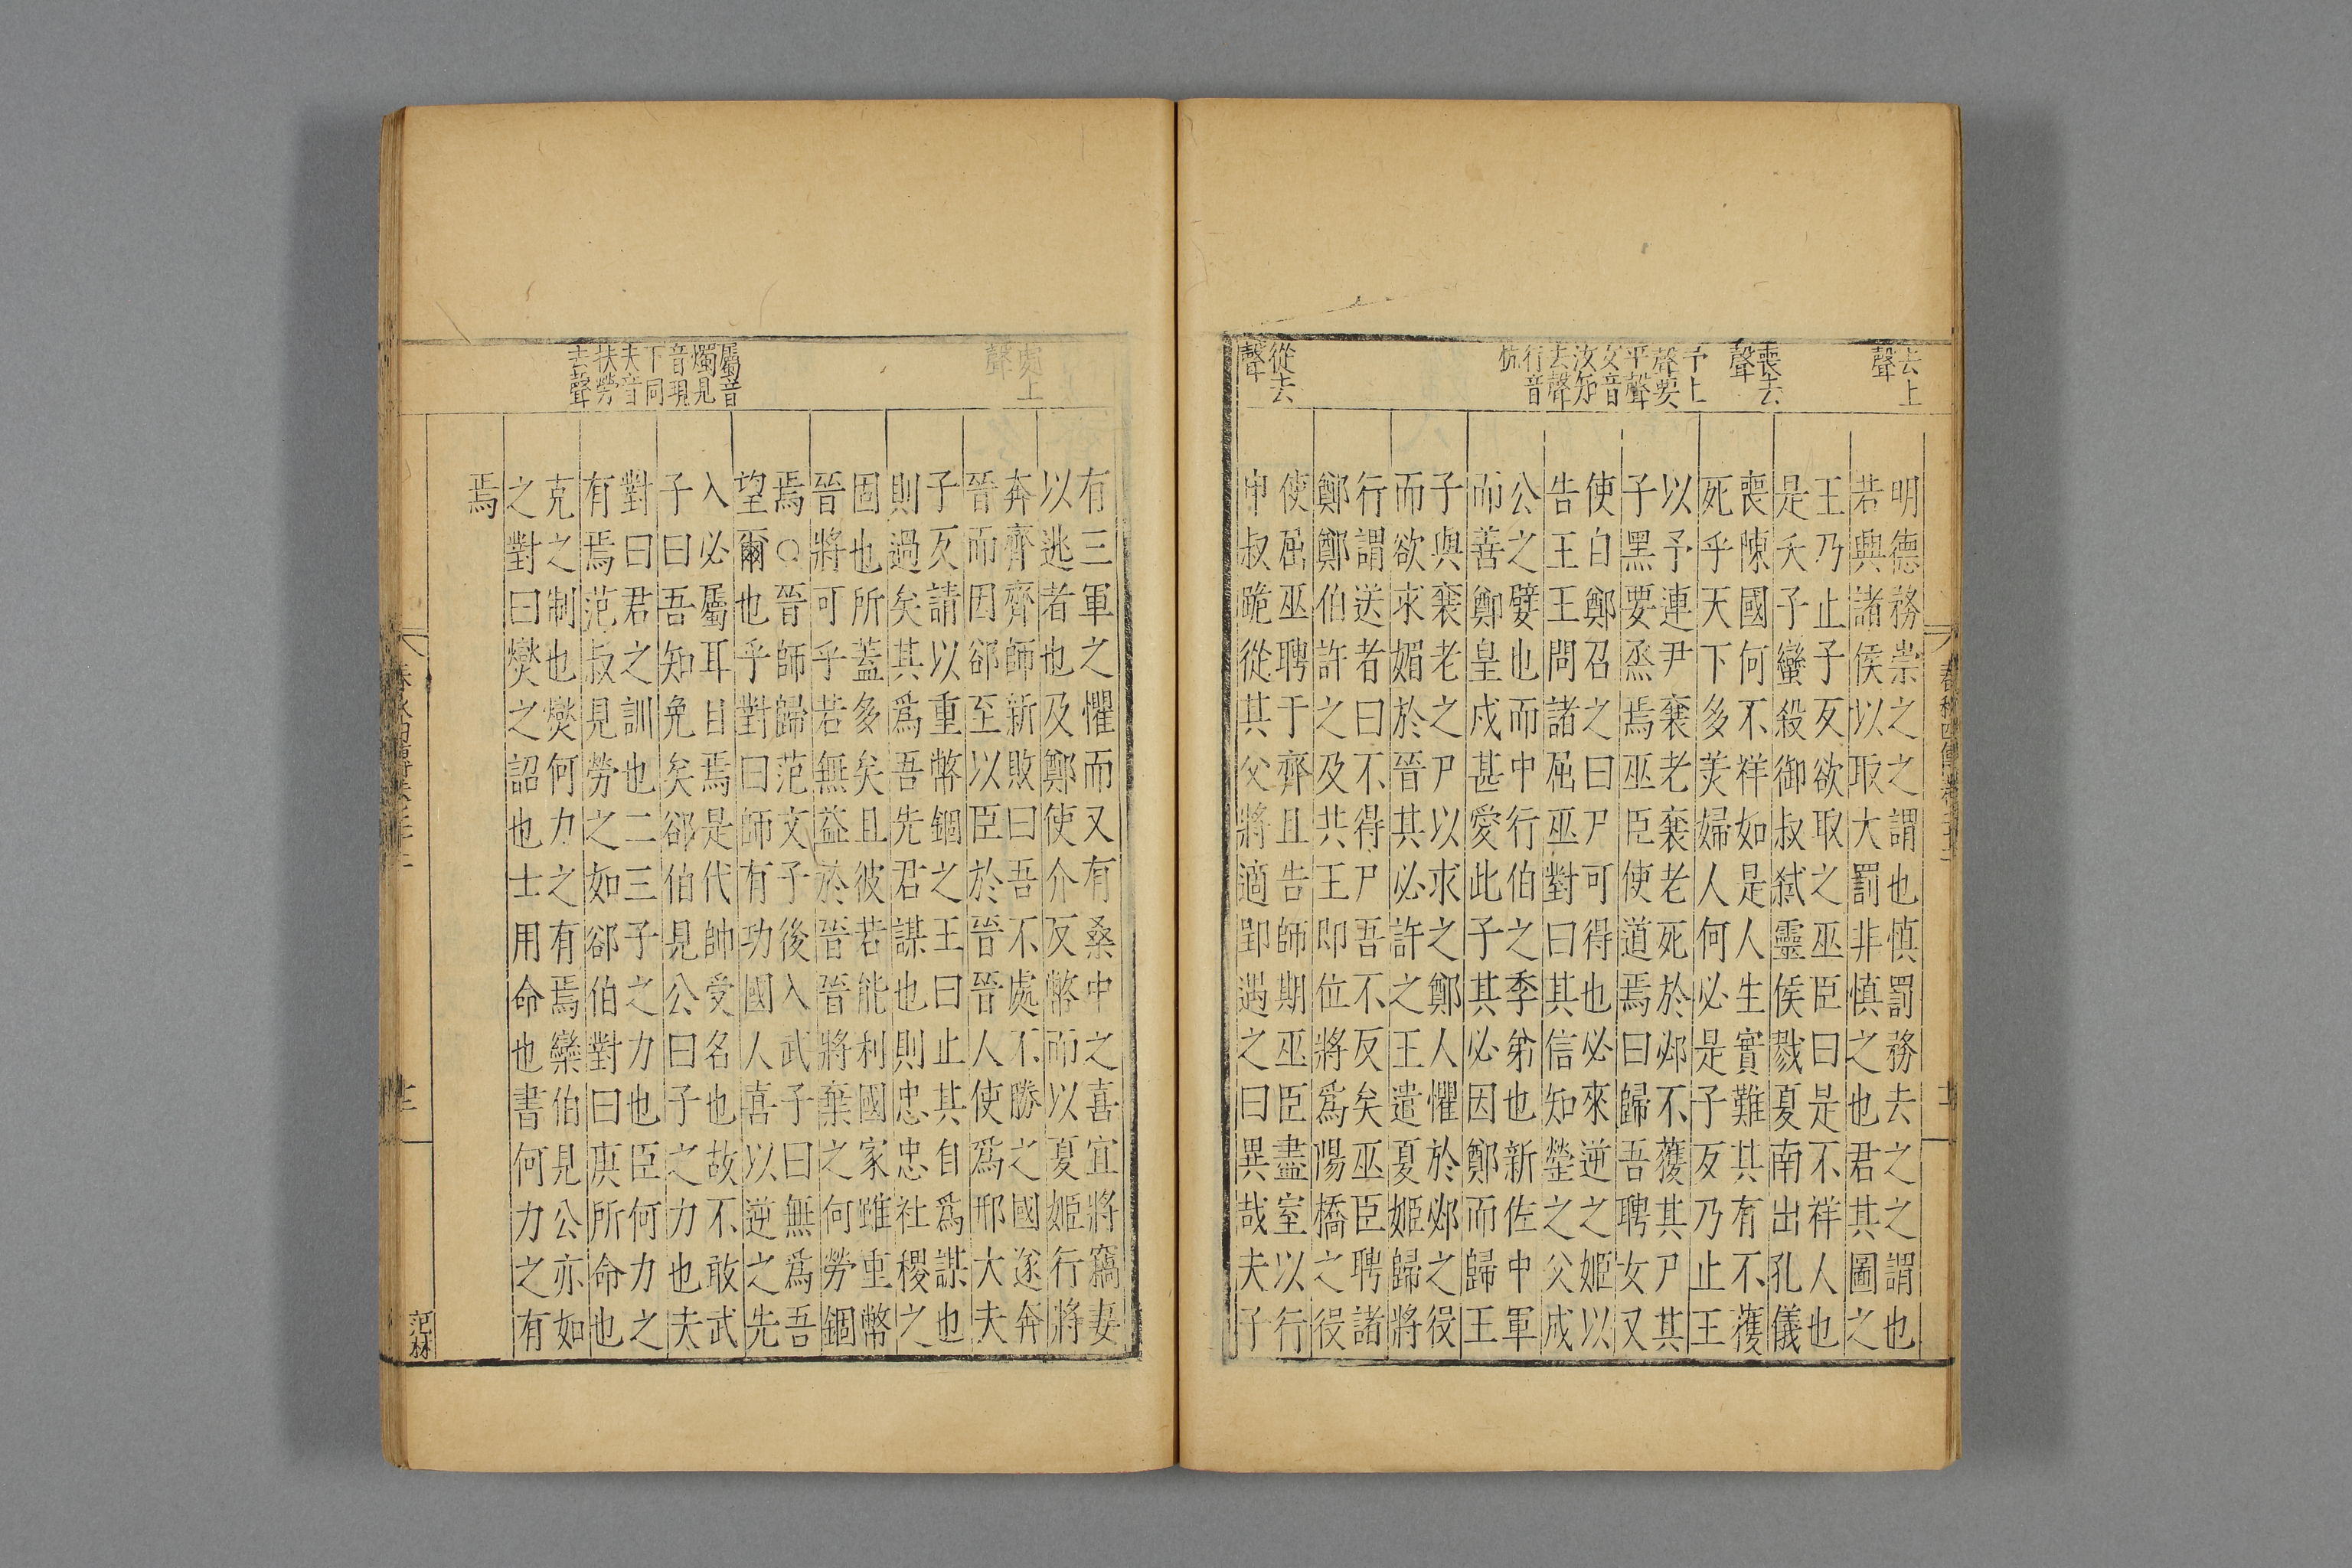 去上
聲
喪去
聲
予上
聲要
平聲
女音
汝知
去聲
行音
杭
從去
聲
明德務崇之之謂也慎罰務去之之謂也
若興諸侯以取大罰非慎之也君其圖之
王乃止子反欲取之巫臣曰是不祥人也
是夭子蠻殺御叔弒靈侯戮夏南出孔儀
喪陳國何不祥如是人生實難其有不獲
死乎天下多美婦人何必是子反乃止王
以予連尹襄老襄老死於邲不獲其尸其
子黑要烝焉巫臣使道焉曰歸吾聘女又
使自鄭召之曰尸可得也必來逆之姬以
告王王問諸屈巫對曰其信知罃之父成
公之嬖也而中行伯之季弟也新佐中軍
而善鄭皇戌甚愛此子其必因鄭而歸王
子與襄老之尸以求之鄭人懼於邲之役
而欲求媚於晉其必許之王遣夏姬歸將
行謂送者曰不得尸吾不反矣巫臣聘諸
鄭鄭伯許之及共王即位將爲陽橋之役
使屈巫聘于齊且告師期巫臣盡室以行
申叔跪從其父將適郢遇之曰異哉夫子
春秋四傳卷二十二
處上
聲
屬音
燭見
音現
下同
夫音
扶勞
去聲
有三軍之懼而又有桑中之喜宜將竊妻
以逃者也及鄭使介反幣而以夏姬行將
奔齊齊師新敗曰吾不處不勝之國遂奔
晉而因郤至以臣於晉晉人使爲邢大夫
子反請以重幣錮之王曰止其自爲謀也
則過矣其爲吾先君謀也則忠忠社稷之
固也所蓋多矣且彼若能利國家雖重幣
晉將可乎若無益於晉晉將棄之何勞錮
焉○晉師歸范文子後入武子曰無爲吾
望爾也乎對曰師有功國人喜以逆之先
入必屬耳目焉是代帥受名也故不敢武
子曰吾知免矣郤伯見公曰子之力也夫
對曰君之訓也二三子之力也臣何力之
有焉范叔見勞之如郤伯對曰庚所命也
克之制也爕何力之有焉欒伯見公亦如
之對曰爕之詔也士用命也書何力之有
焉